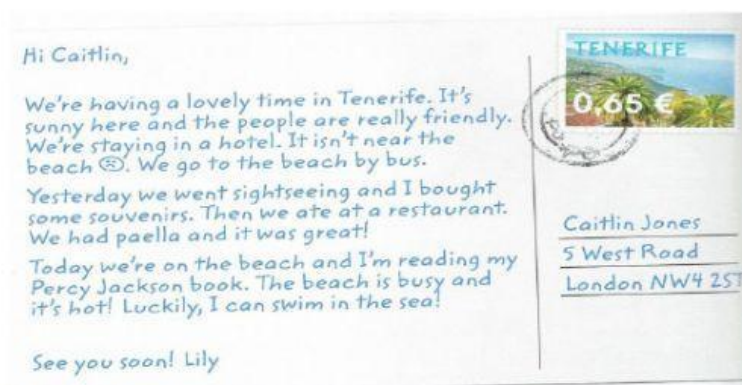 Hi Caitlin,
We're having a lovely time in Tenerife. It's
sunny here and the people are really friendly.
We're staying in a hotel. It isn't near the
beach ☹. We go to the beach by bus.
Yesterday we went sightseeing and I bought
some souvenirs. Then we ate at a restaurant.
We had paella and it was great!
Today we're on the beach and I'm reading my
Percy Jackson book. The beach is busy and
it's hot! Luckily, I can swim in the sea!
See you soon! Lily
TENERIFE
0.65 €
Caitlin Jones
5 West Road
London NW4 2ST